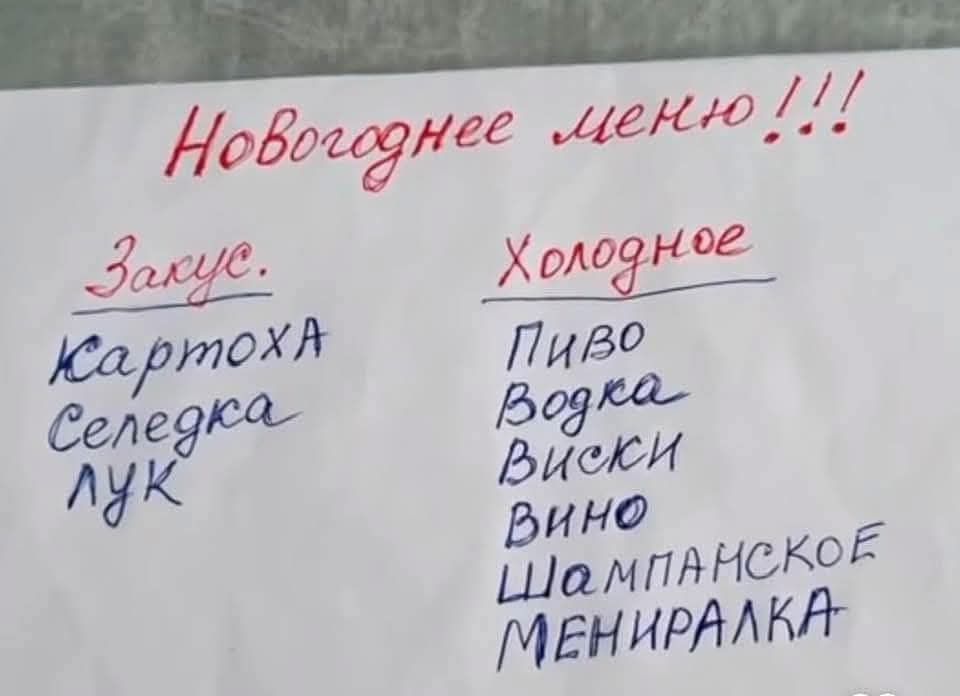 Новогоднее меню!!!
Закус.
Картоха
Селедка
Лук
Холодное
Пиво
Водка
Виски
Вино
Шампанское
МЕНИРАЛКА